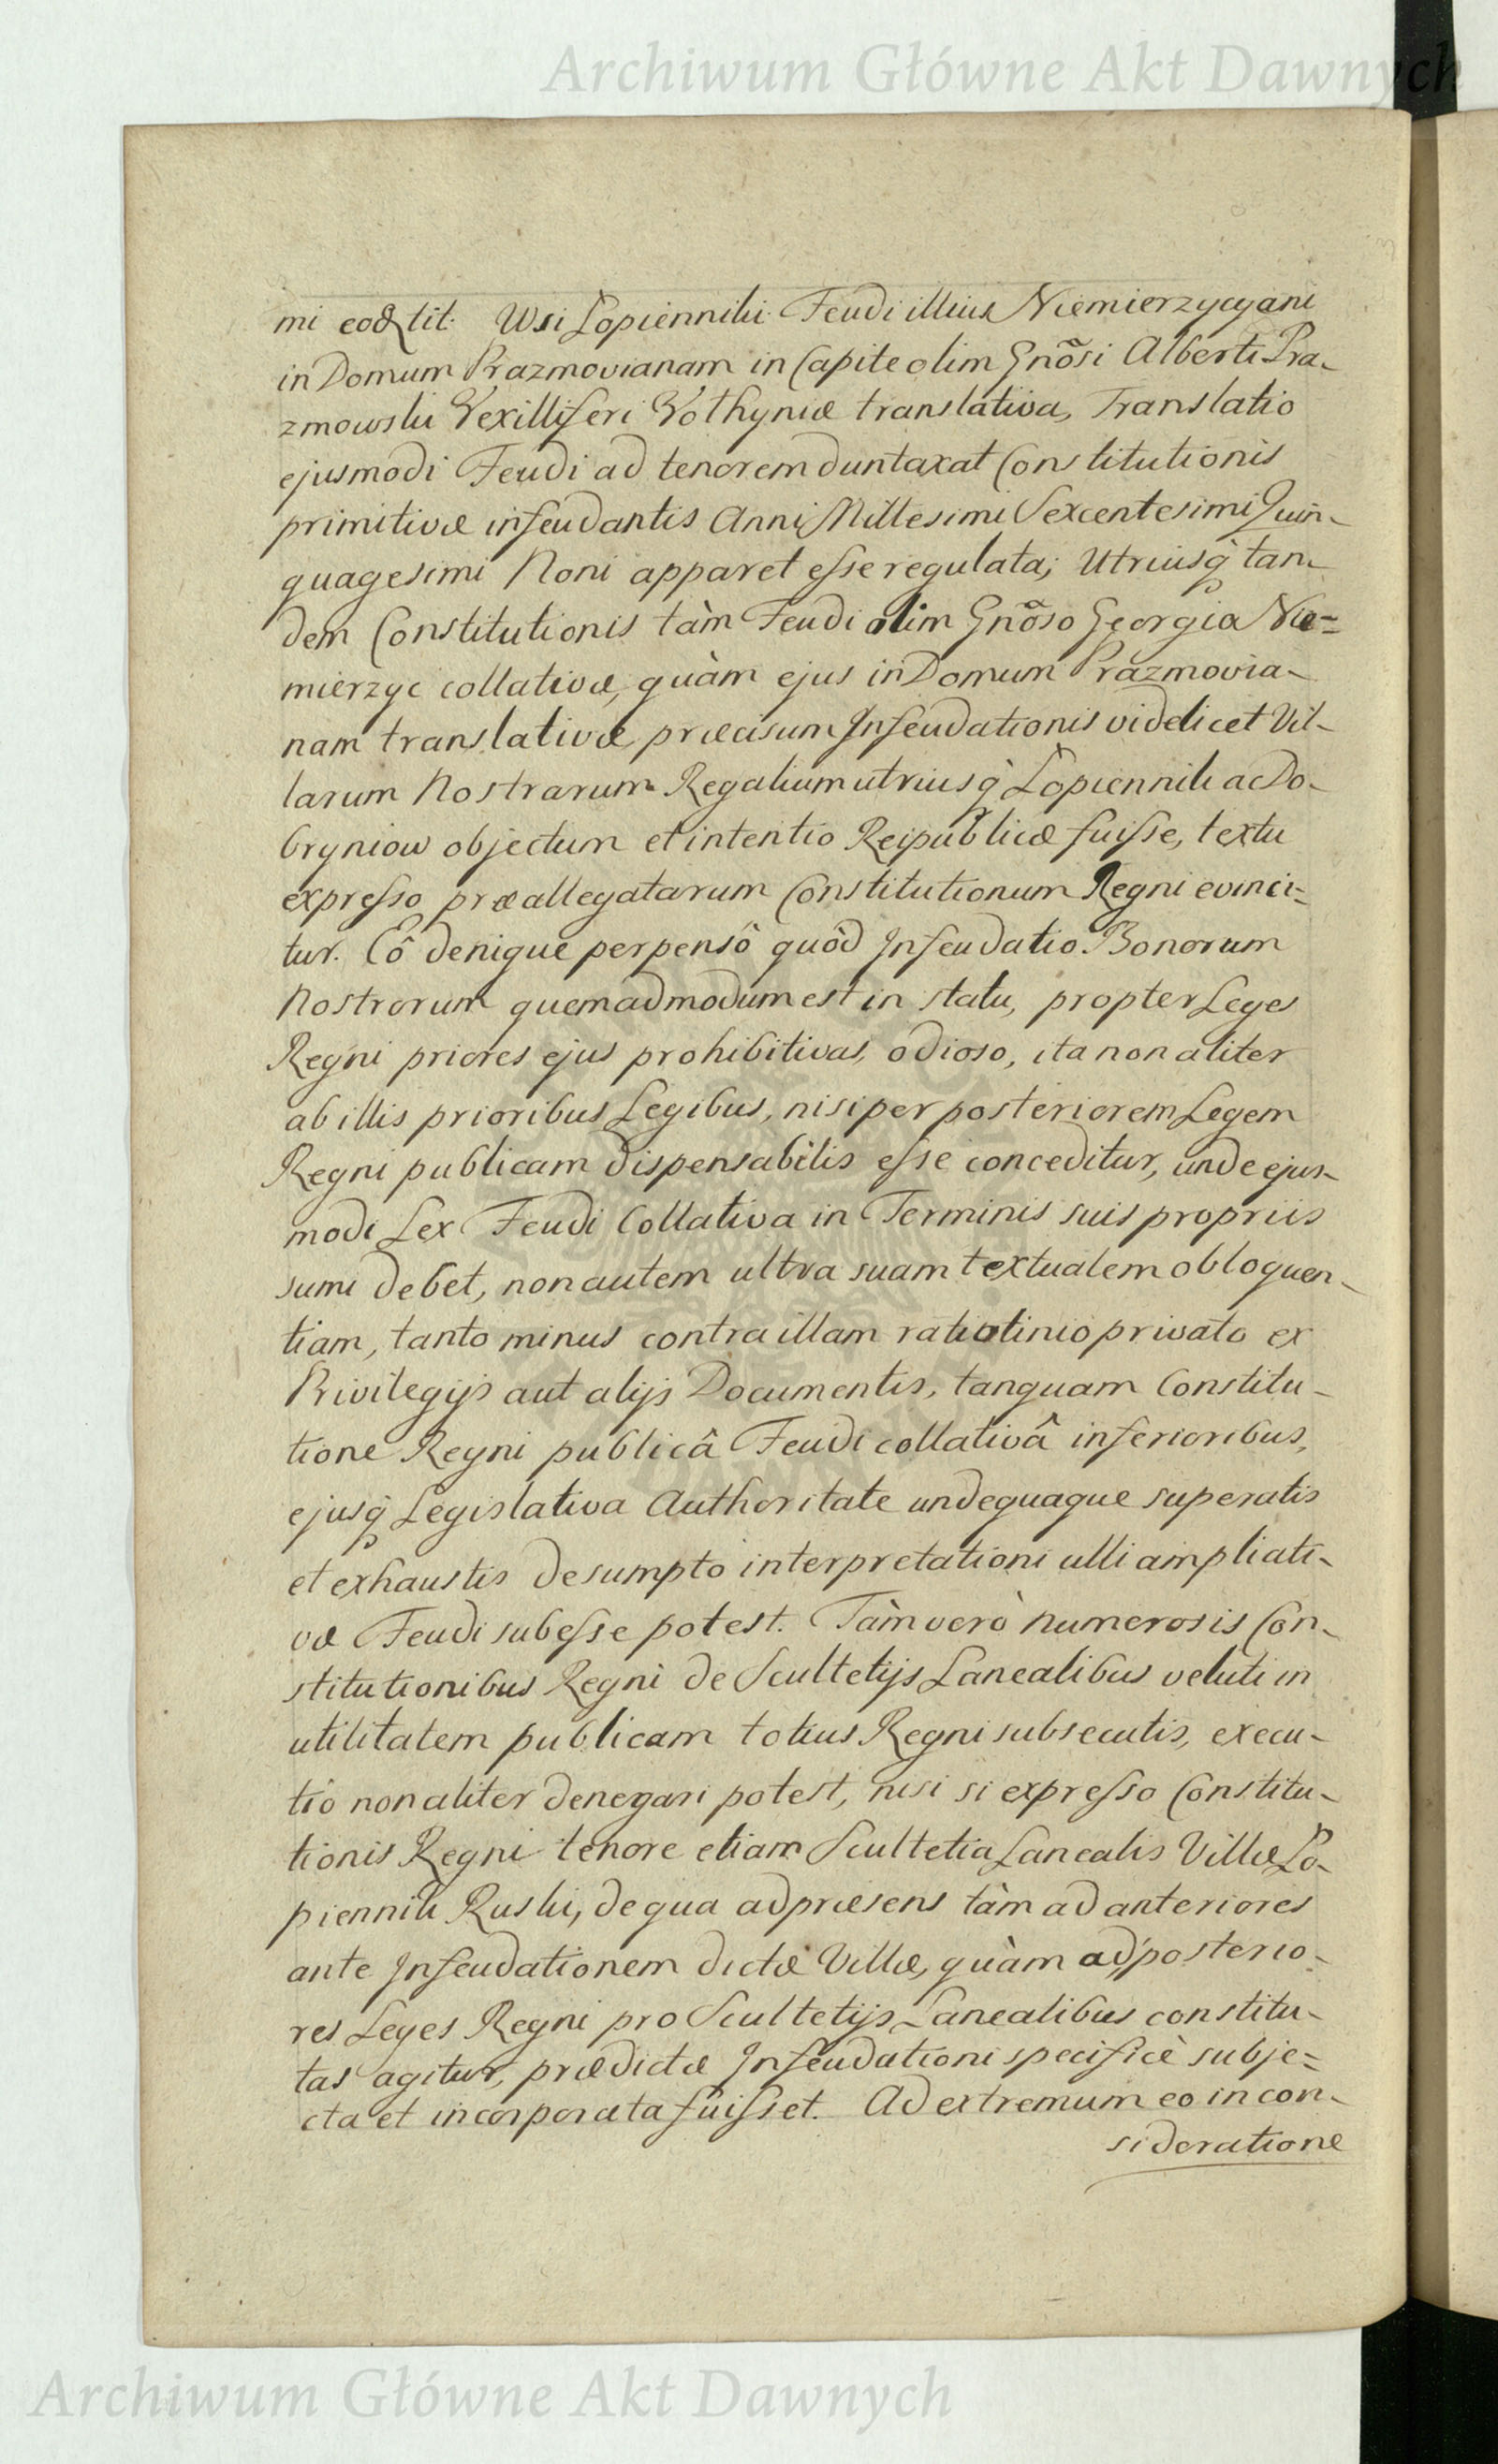 Archiwum Główne Akt Dawnych
mi eod tit. Wsi Łopiennili Feudi illius Niemierzycyani
in Domum Prazmovianam in Capite olim Gnõsi Alberti Pra-
zmowski Vexilliferi Volhyniæ translativa, Translatio
ejusmodi Feudi ad tenorem duntaxat Constitutionis
primitivæ infeudantis Anni Millesimi Sexcentesimi Quin-
quagesimi Noni apparet esse regulata; Utriusq̀ tan-
dem Constitutionis tàm Feudi olim Gnõso Georgio Nie=
mierzyc collativæ, quàm ejus in Domum Prazmovia-
nam translativæ, præcisum Infeudationis videlicet Vil-
larum Nostrarum Regalium utriusq̀ Łopiennik ac Do-
bryniow objectum et intentio Reipublicæ fuisse, textu
expresso præallegatarum Constitutionum Regni evinci=
tur. Eô denique perpensô quôd Infeudatio Bonorum
Nostrorum quemadmodum est in statu, propter Leges
Regni priores ejus prohibitivas, odioso, ita non aliter
ab illis prioribus Legibus, nisi per posteriorem Legem
Regni publicam dispensabilis esse conceditur, unde ejus-
modi Lex Feudi Collativa in Terminis suis propriis
sumi debet, non autem ultra suam textualem obloquen-
tiam, tanto minus contra illam ratiotinio privato ex
Privilegijs aut alijs Documentis, tanquam Constitu-
tione Regni publicâ Feudi collativâ inferioribus,
ejusq̀ Legislativa Authoritate undequaque superatis
et exhaustis desumpto interpretationi ulli ampliati-
væ Feudi subesse potest. Tàm verò numerosis Con-
stitutionibus Regni de Scultetijs Lanealibus veluti in
utilitatem publicam totius Regni subsecutis, execu-
tio non aliter denegari potest, nisi si expresso Constitu-
tionis Regni tenore etiam Scultetia Lanealis Villæ Ło-
piennik Ruski, de qua ad præsens tàm ad anteriores
ante Infeudationem dictæ Villæ, quàm ad posterio-
res Leges Regni pro Scultetijs Lanealibus constitu-
tas agitur, prædictæ Infeudationi specificè subje=
cta et incorporata fuisset. Ad extremum eo in con-
sideratione
Archiwum Główne Akt Dawnych